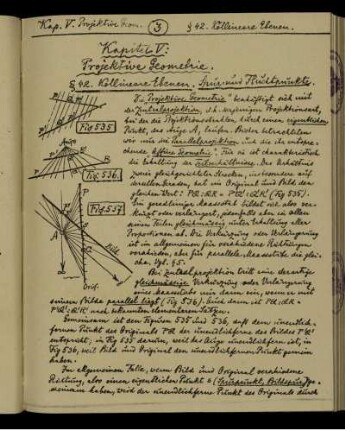 Kap. V: Projektive Geom.
3
§ 42. Kollineare Ebenen.
Kapitel V:
Projektive Geometrie.
§ 42. Kollineare Ebenen. Spur- und Fluchtpunkte.
Die "Projektive Geometrie" beschäftigt sich mit
der Zentralprojektion, d.h. derjenigen Projektionsart,
bei der die Projektionsstrahlen durch einen eigentlichen
Punkt, das Auge A, laufen. Bisher betrachteten
wir nur die Parallelprojektion und die ihr entspre-
chende affine Geometrie. Für sie ist charakteristisch
die Erhaltung der Teilverhältnisse. Das Verhältnis
zweier gleichgerichteter Strecken, insbesondere auf
derselben Geraden, hat im Original und Bild den
gleichen Wert: (Fig 535).
Ein geradliniger Massstab bildet sich also ver-
kürzt oder verlängert, jedenfalls aber in allen
seinen Teilen gleichmässig unter Erhaltung aller
Proportionen ab. Die Verkürzung oder Verlängerung
ist im allgemeinen für verschiedene Richtungen
verschieden, aber für parallele Massstäbe die glei-
che. Vgl. § 5.
Bei Zentralprojektion tritt eine derartige
gleichmässige Verkürzung oder Verlängerung
eines Massstabs nur dann ein, wenn er mit
seinem Bilde parallel liegt (Fig 536). Auch dann ist
nach bekannten elementaren Sätzen.
Gemeinsam ist den Figuren 535 und 536, dass dem unendlich-
fernen Punkt des Originals der unendlichferne des Bildes
entspricht; in Fig 535 darum, weil das Auge unendlichfern ist, in
Fig 536, weil Bild und Original den unendlichfernen Punkt gemein
haben.
Im allgemeinen Falle, wenn Bild und Original verschiedene
Richtung, also einen eigentlichen Punkt (Spurpunkt, Bildspur) ge-
meinsam haben, wird der unendlichferne Punkt des Originals durch
Fig 535
Auge
Fig 536.
Fig 537
Bild
Orig.